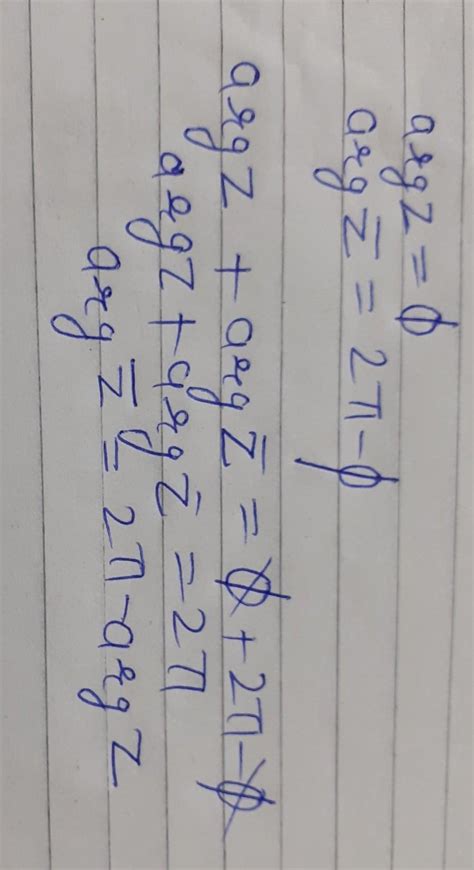 arg z = φ
arg z̅ = 2π-φ
arg z + arg z̅ = φ + 2π-φ
arg z + arg z̅ = 2π
arg z̅ = 2π-arg z